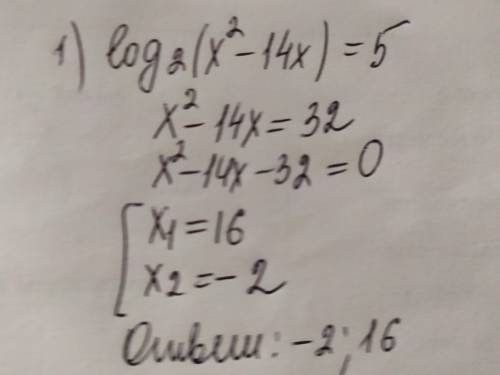 1) log₂(x²-14x)=5
x²-14x=32
x²-14x-32=0
[x₁=16
x₂=-2
Ответ: -2; 16